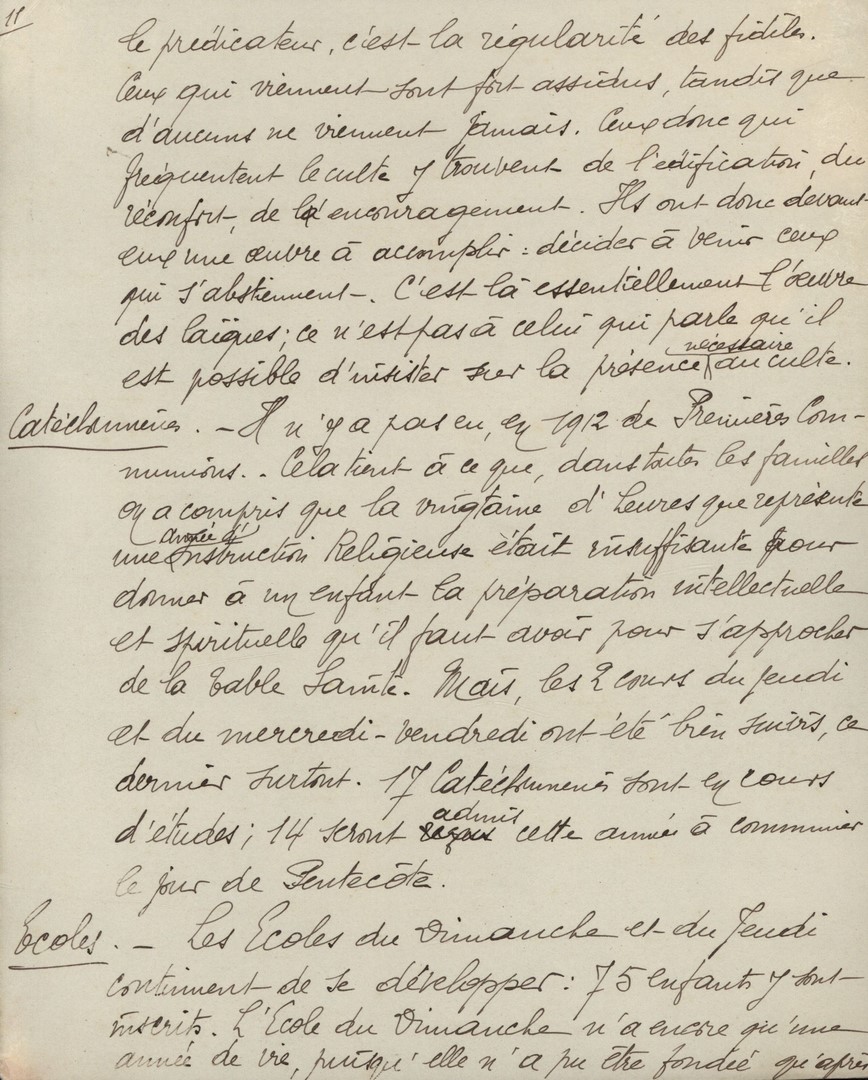 11
le prédicateur, c'est la régularité des fidèles.
Ceux qui viennent sont fort assidus, tandis que
d'aucuns ne viennent jamais. Ceux donc qui
fréquentent le culte y trouvent de l'édification, du
réconfort, de l'encouragement. Ils ont donc devant
eux une œuvre à accomplir : décider à venir ceux
qui s'abstiennent. C'est là essentiellement l'œuvre
des laïques ; ce n'est pas à celui qui parle qu'il
est possible d'insister sur la présence nécessaire au culte.
Catéchumènes. - Il n'y a pas eu, en 1912 de Premières Com-
munions. - Cela tient à ce que, dans toutes les familles
on a compris que la vingtaine d'heures que représente
une année d'Instruction Religieuse était insuffisante pour
donner à un enfant la préparation intellectuelle
et spirituelle qu'il faut avoir pour s'approcher
de la Table Sainte. Mais, les 2 cours du jeudi
et du mercredi-vendredi ont été bien suivis, ce
dernier surtout. 17 Catéchumènes sont en cours
d'études ; 14 seront admis cette année à communier
le jour de Pentecôte.
Ecoles. - Les Ecoles du Dimanche et du Jeudi
continuent de se développer : 75 enfants y sont
inscrits. L'Ecole du Dimanche n'a encore qu'une
année de vie, puisqu'elle n'a pu être fondée qu'après